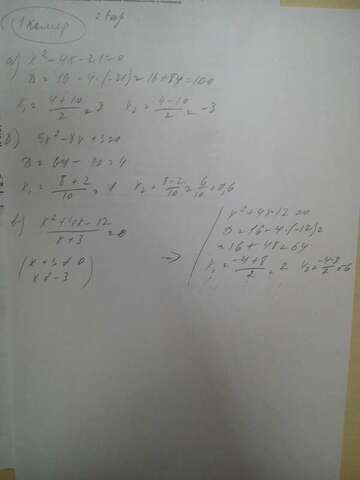 1 номер 2 вар
а) x² - 4x - 21 = 0
D = 16 - 4·(-21) = 16 + 84 = 100
x₁ = (4+10)/2 = 7 x₂ = (4-10)/2 = -3
б) 5x² - 8x + 3 = 0
D = 64 - 60 = 4
x₁ = (8+2)/10 = 1 x₂ = (8-2)/10 = 6/10 = 0,6
в) (x² + 4x - 12)/(x+3) = 0
(x + 3 ≠ 0
x ≠ -3)
→ x² + 4x - 12 = 0
D = 16 - 4·(-12) =
= 16 + 48 = 64
x₁ = (-4+8)/2 = 2 x₂ = (-4-8)/2 = -6